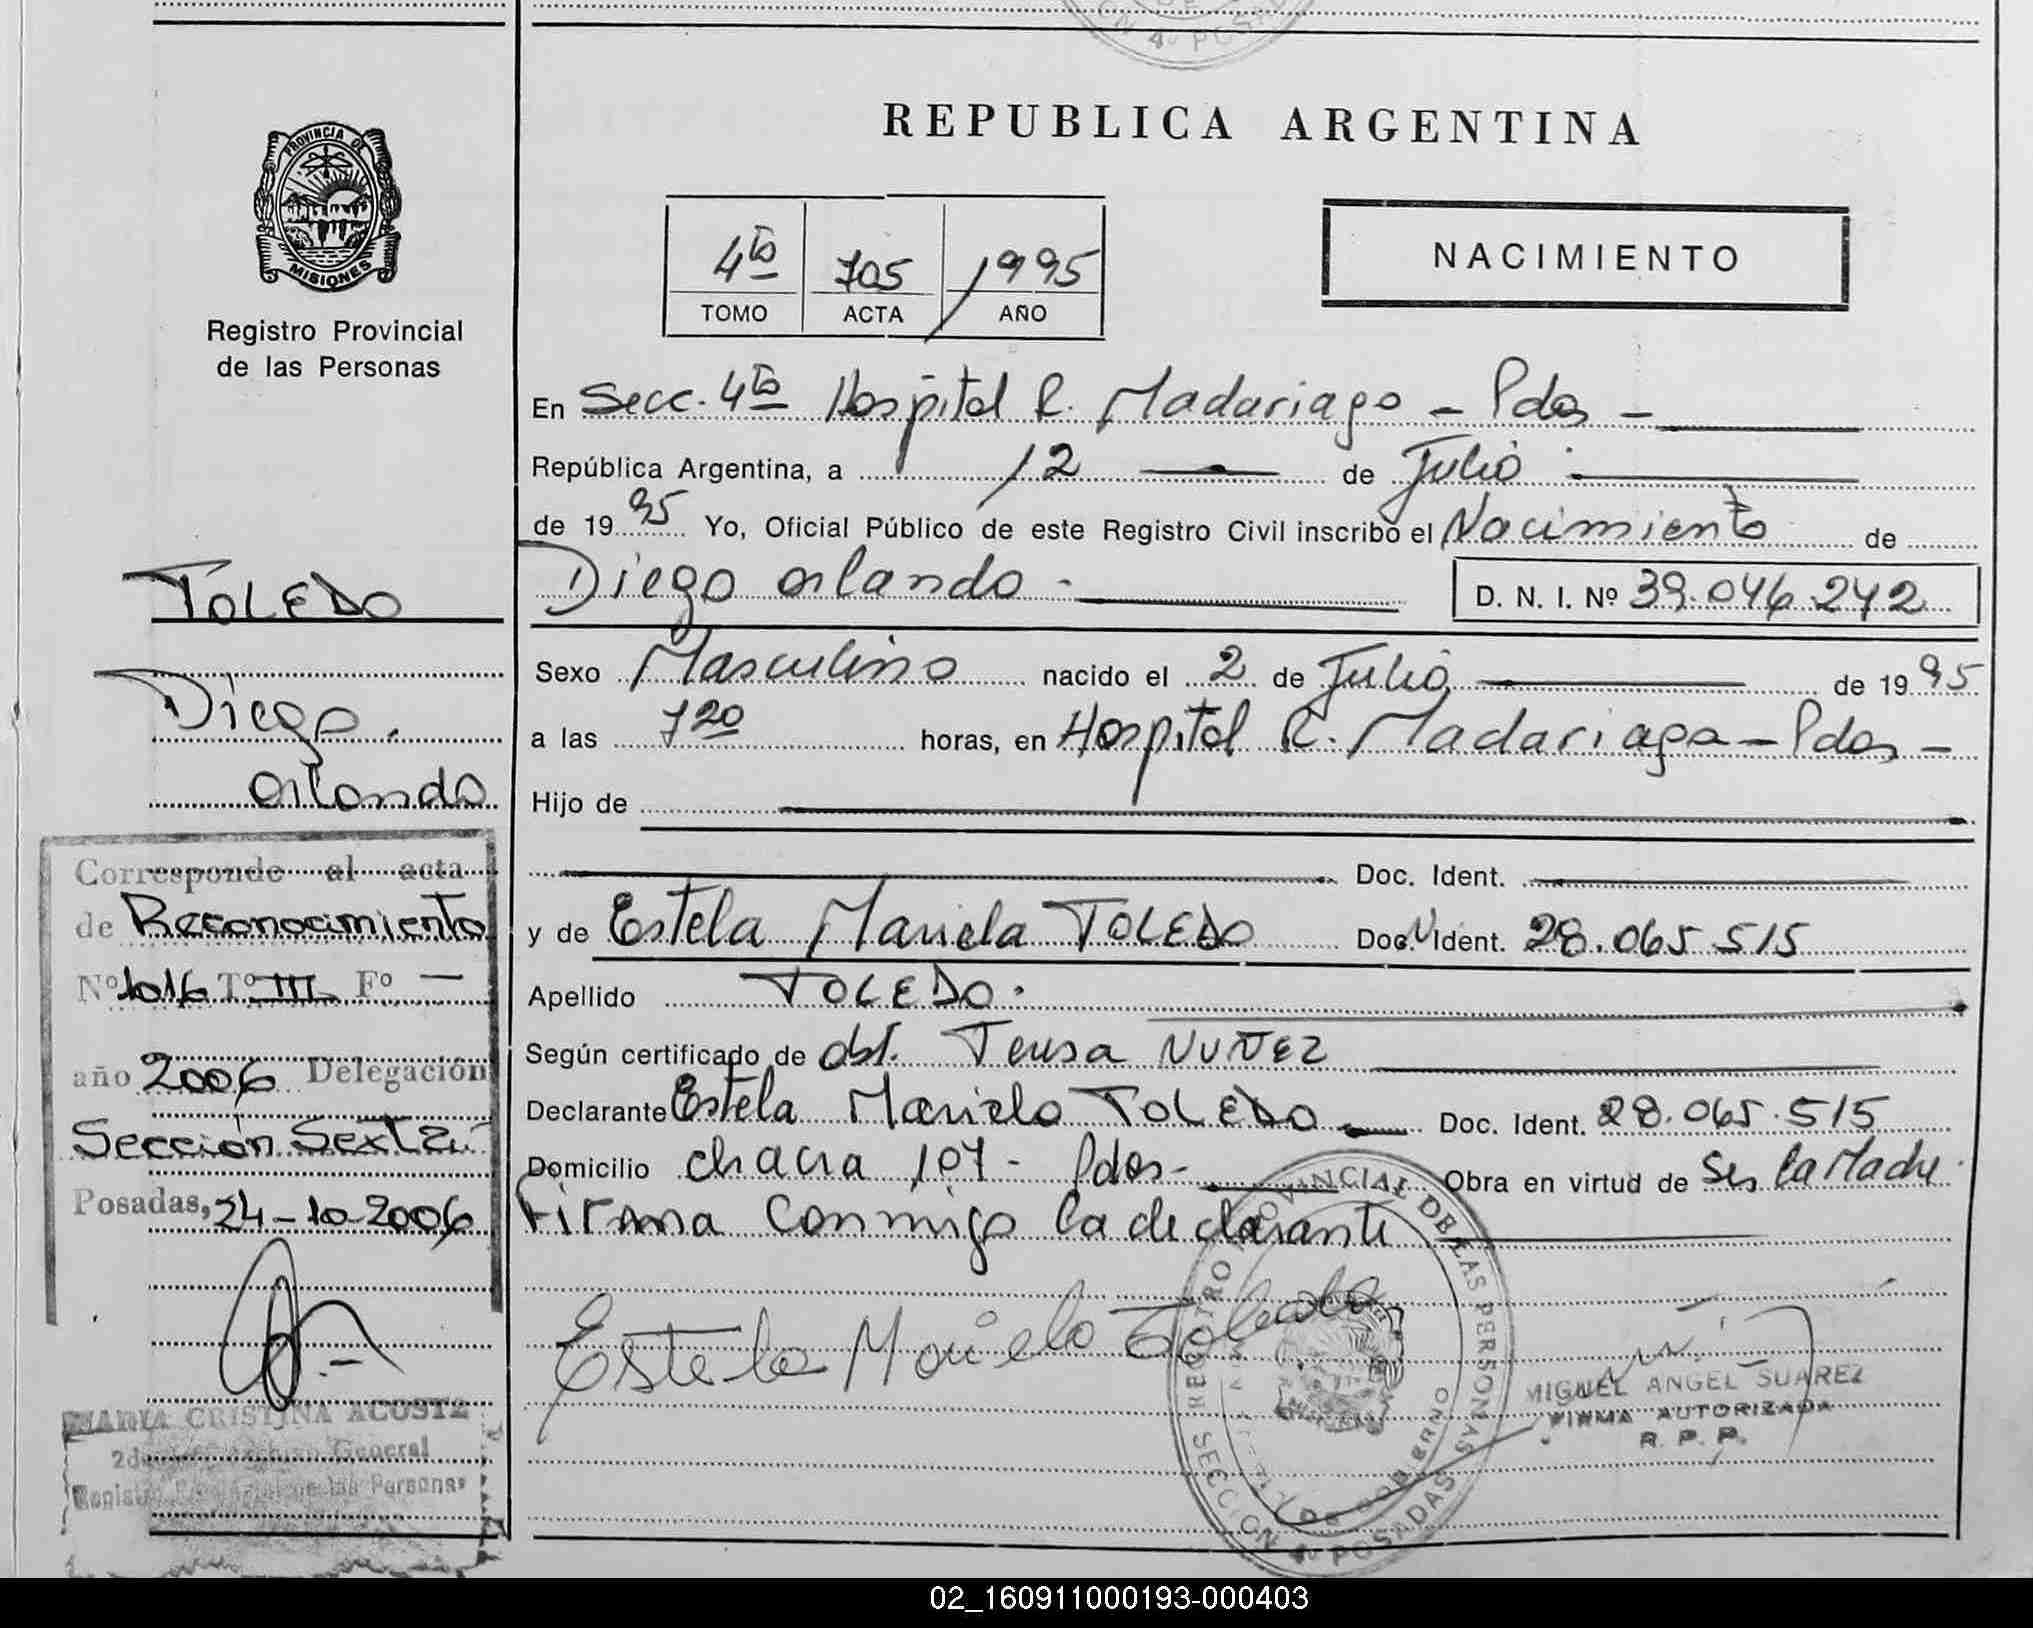 CION 4º POSAD
PROVINCIA DE
MISIONES
Registro Provincial
de las Personas
REPUBLICA ARGENTINA
4to 705 1995
TOMO ACTA AÑO
NACIMIENTO
En Secc. 4ta Hospital R. Madariaga - Pdas -
República Argentina, a 12 de Julio
de 1995 Yo, Oficial Público de este Registro Civil inscribo el Nacimiento de
Diego Orlando. D. N. I. Nº 39.046.242
Sexo Masculino nacido el 2 de Julio de 1995
a las 7 20 horas, en Hospital R. Madariaga - Pdas -
Hijo de
Doc. Ident.
y de Estela Mariela TOLEDO Doc. Ident. 28.065.515
Apellido TOLEDO.
Según certificado de obst. Teresa NUÑEZ
Declarante Estela Mariela TOLEDO Doc. Ident. 28.065.515
Domicilio chacra 107 - Pdas - Obra en virtud de Ser la Madre.
Firma conmigo la declarante
Estela Mariela Toledo
MIGUEL ANGEL SUAREZ
FIRMA AUTORIZADA
R. P. P.
REGISTRO PROVINCIAL DE LAS PERSONAS
SECCION 4º POSADAS
DE GOBIERNO
TOLEDO
Diego.
Orlando
Corresponde al acta
de Reconocimiento
Nº 1016 Tº III Fº —
año 2006 Delegación
Sección Sexta
Posadas, 24-10-2006
MARIA CRISTINA ACOSTA
General
de las Personas
02_160911000193-000403